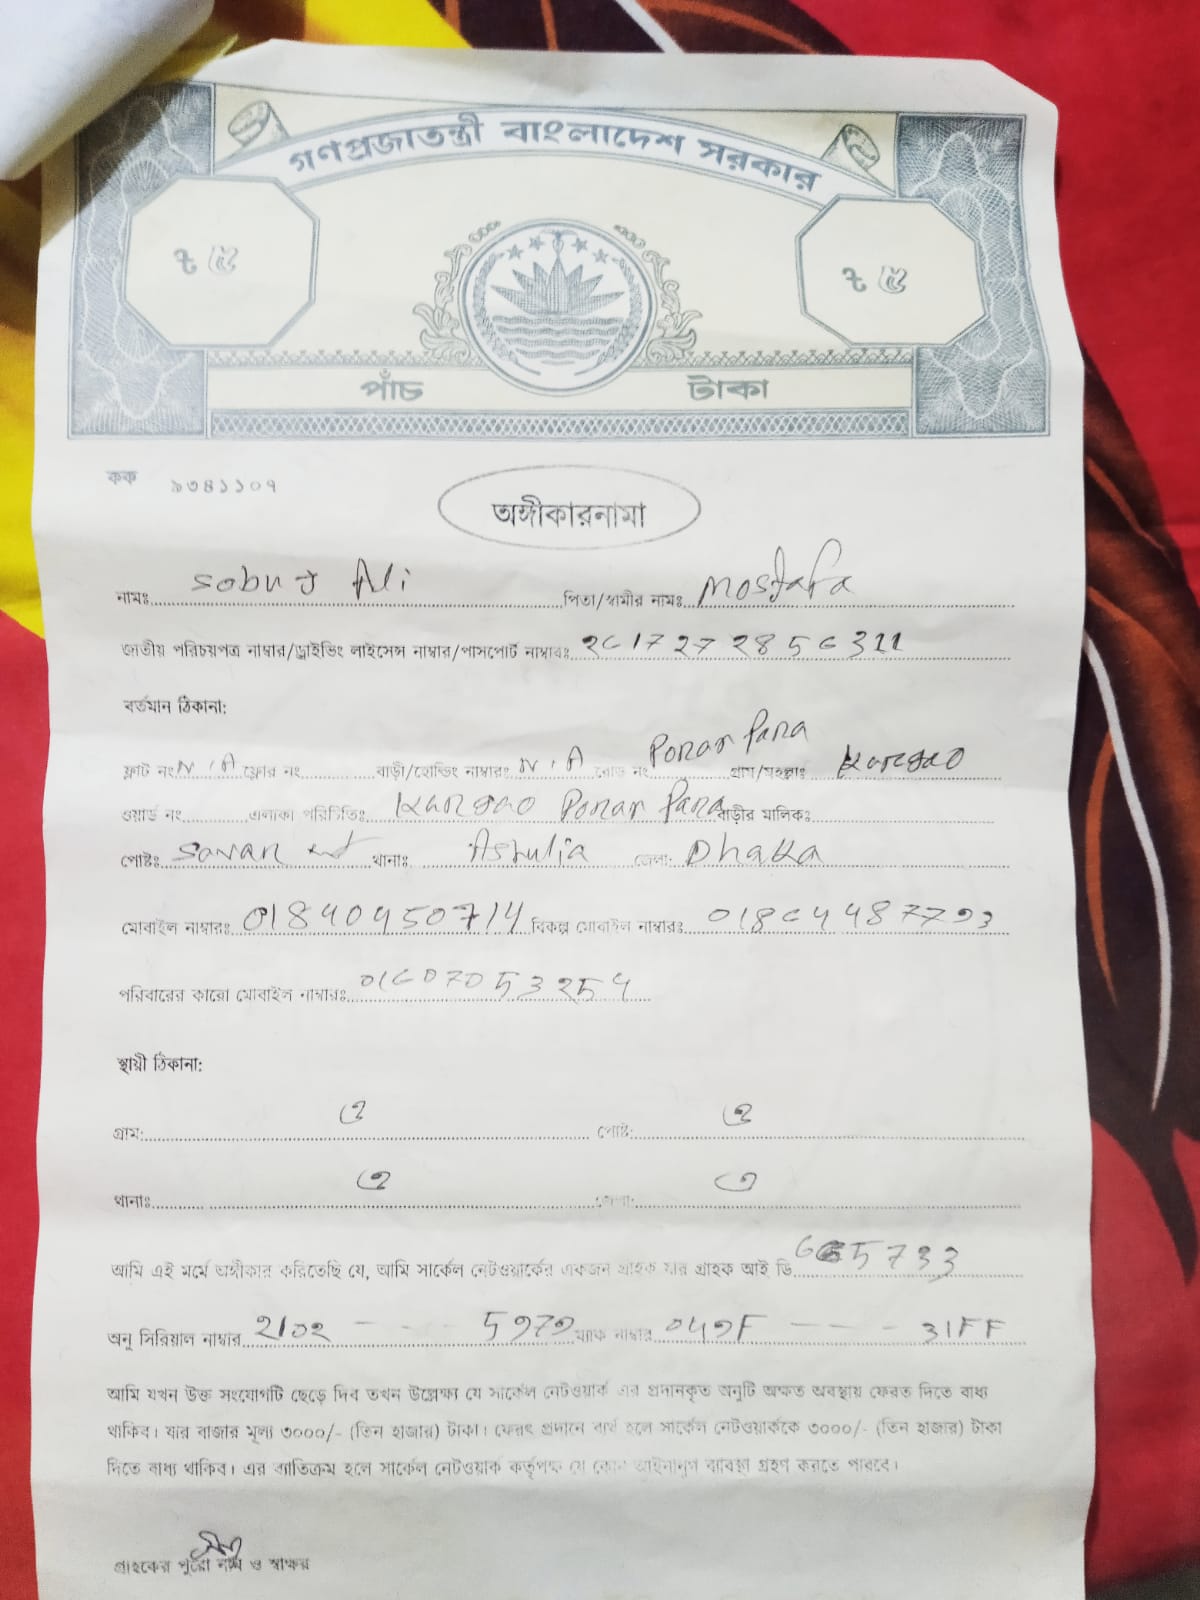 গণপ্রজাতন্ত্রী বাংলাদেশ সরকার
৳ ৫ ৳ ৫
পাঁচ টাকা
কক ৯৩৪১১০৭
অঙ্গীকারনামা
নামঃ Sobuj Ali পিতা/স্বামীর নামঃ Mostafa
জাতীয় পরিচয়পত্র নাম্বার/ড্রাইভিং লাইসেন্স নাম্বার/পাসপোর্ট নাম্বারঃ
বর্তমান ঠিকানা:
ফ্লাট নং N/A ফ্লোর নং বাড়ী/হোল্ডিং নাম্বারঃ N/A রোড নং Ponar Para গ্রাম/মহল্লাঃ
ওয়ার্ড নং এলাকা পরিচিতিঃ Ponar Para বাড়ীর মালিকঃ
পোষ্টঃ Savar থানাঃ Ashulia জেলা: Dhaka
মোবাইল নাম্বারঃ 01840450714 বিকল্প মোবাইল নাম্বারঃ
পরিবারের কারো মোবাইল নাম্বারঃ
স্থায়ী ঠিকানা:
গ্রাম: ঐ পোষ্ট: ঐ
থানাঃ ঐ জেলা: ঐ
আমি এই মর্মে অঙ্গীকার করিতেছি যে, আমি সার্কেল নেটওয়ার্কের একজন গ্রাহক যার গ্রাহক আই ডি
অনু সিরিয়াল নাম্বার ম্যাক নাম্বার 31FF
আমি যখন উক্ত সংযোগটি ছেড়ে দিব তখন উল্লেক্ষ্য যে সার্কেল নেটওয়ার্ক এর প্রদানকৃত অনুটি অক্ষত অবস্থায় ফেরত দিতে বাধ্য
থাকিব। যার বাজার মূল্য ৩০০০/- (তিন হাজার) টাকা। ফেরৎ প্রদানে ব্যর্থ হলে সার্কেল নেটওয়ার্ককে ৩০০০/- (তিন হাজার) টাকা
দিতে বাধ্য থাকিব। এর ব্যাতিক্রম হলে সার্কেল নেটওয়ার্ক কর্তৃপক্ষ যে কোন ব্যবস্থা গ্রহণ করতে পারবে।
গ্রাহকের পুরো নাম ও স্বাক্ষর